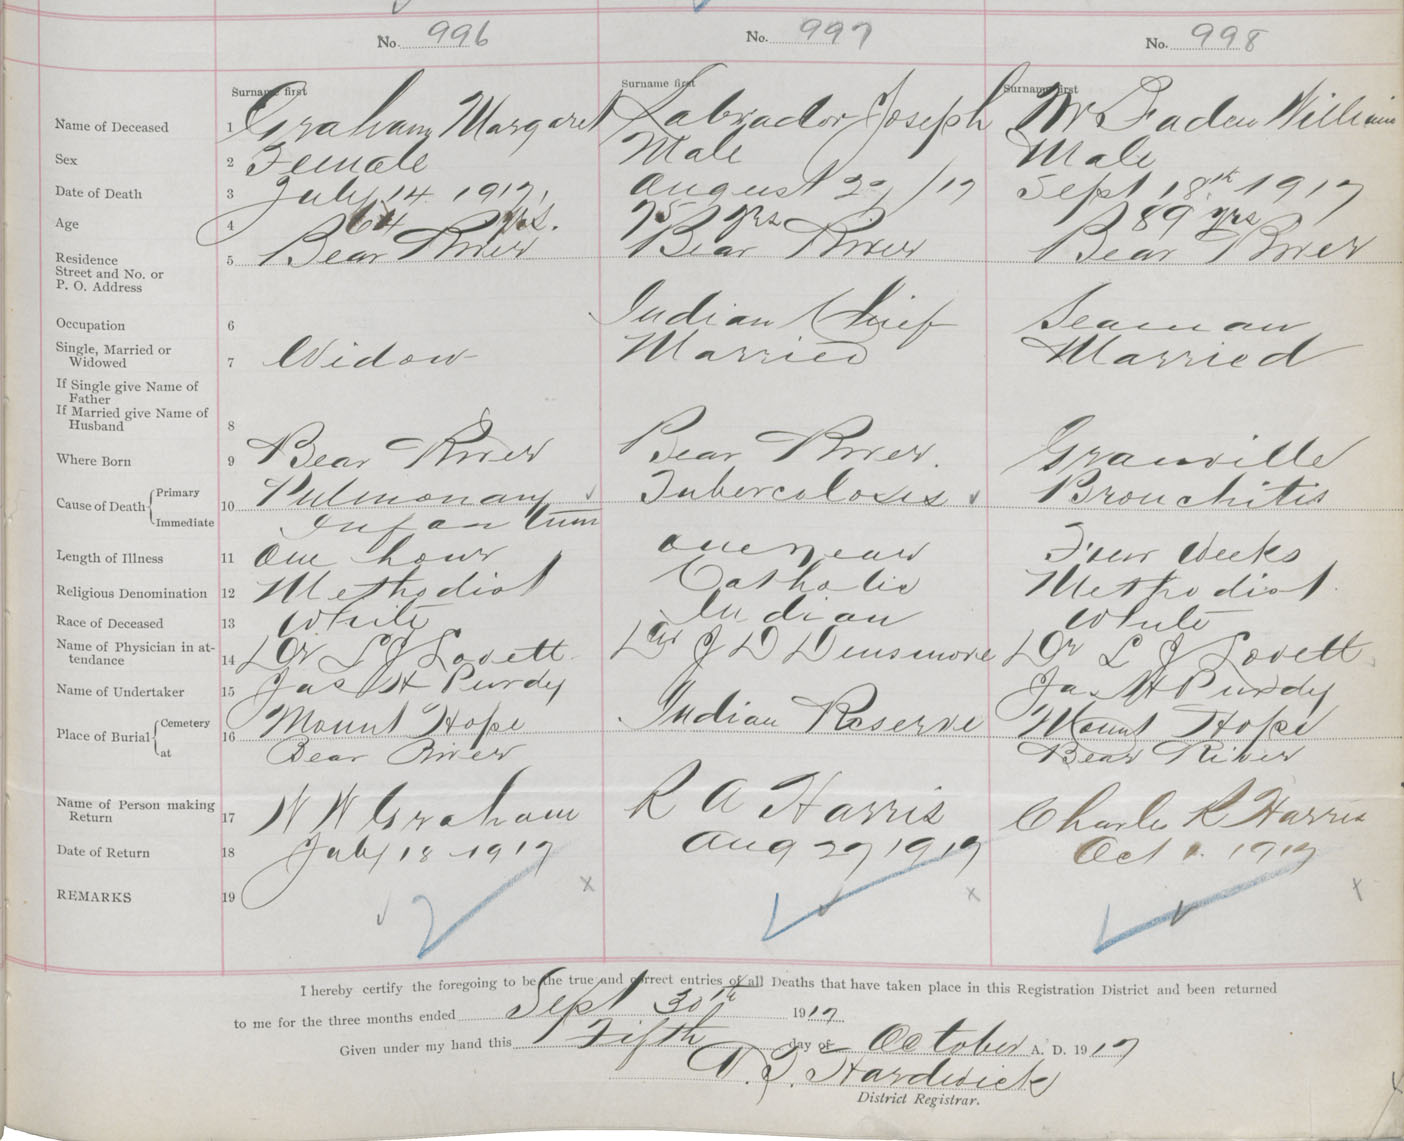 No. 996 No. 997 No. 998
Surname first Surname first Surname first
Name of Deceased 1 Graham Margaret Labrador Joseph McFaden William
Sex 2 Female Male Male
Date of Death 3 July 14 1917 August 22/17 Sept 18th 1917
Age 4 64 yrs. 75 yrs 89 yrs
Residence 5 Bear River Bear River Bear River
Street and No. or
P. O. Address
Occupation 6 Indian Chief Seaman
Single, Married or
Widowed 7 Widow Married Married
If Single give Name of
Father
If Married give Name of
Husband 8
Where Born 9 Bear River Bear River. Granville
Cause of Death Primary 10 Pulmonary Tubercolosis Bronchitis
Immediate
Length of Illness 11 One hour one year Four Weeks
Religious Denomination 12 Methodist Catholic Methodist
Race of Deceased 13 White Indian White
Name of Physician in at-
tendance 14 Dr L J Lovett Dr J D Densmore Dr L J Lovett
Name of Undertaker 15 Jas H Purdy Jas H Purdy
Place of Burial Cemetery 16 Mount Hope Indian Reserve Mount Hope
at Bear River Bear River
Name of Person making
Return 17 W W Graham R A Harris Charles R Harris
Date of Return 18 July 18 1917 Aug 27 1917 Oct 1. 1917
REMARKS 19
I hereby certify the foregoing to be the true and correct entries of all Deaths that have taken place in this Registration District and been returned
to me for the three months ended Sept 30th 1917
Given under my hand this Fifth day of October A. D. 1917
Hardwick
District Registrar.